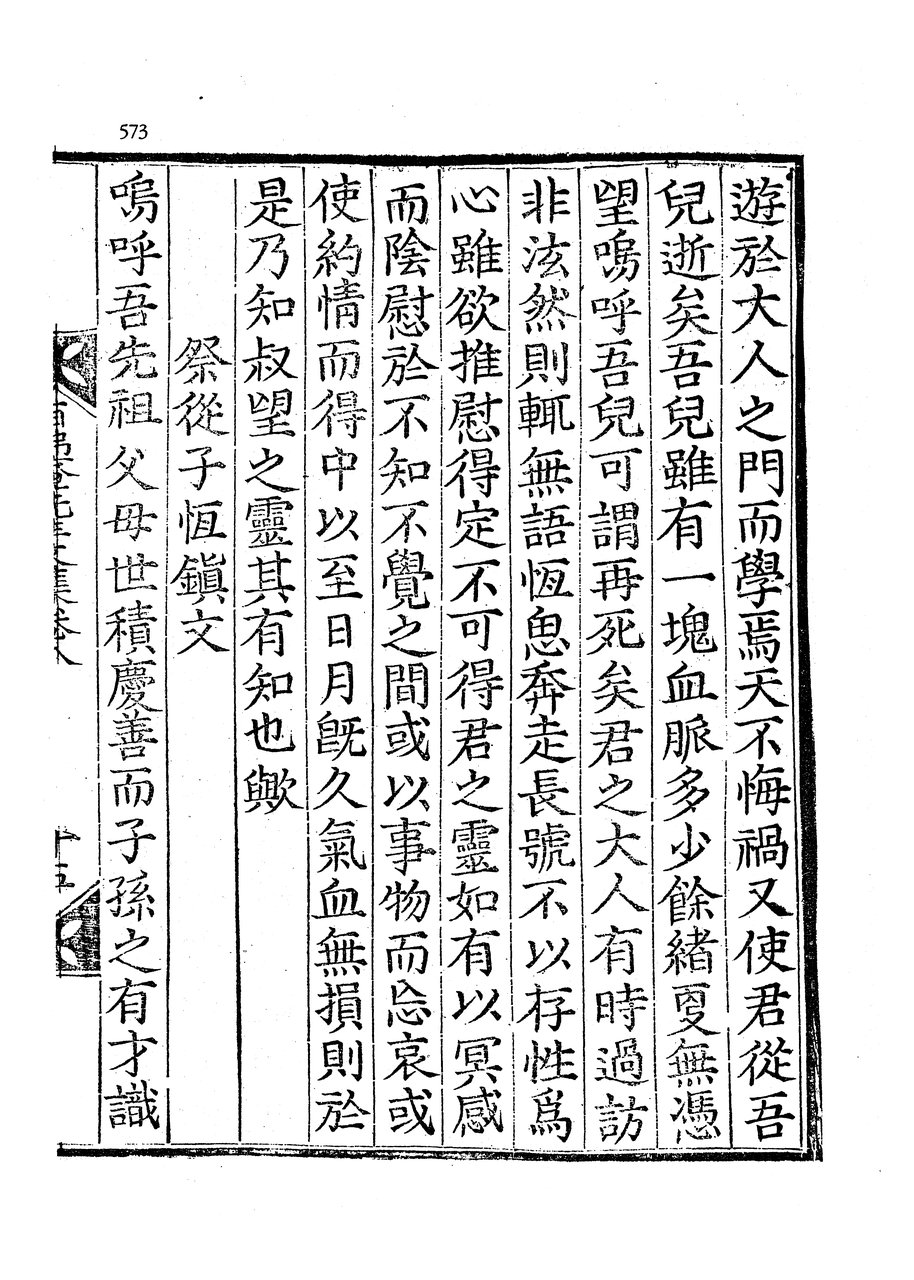 573
遊於大人之門而學焉天不悔禍又使君從吾
兒逝矣吾兒雖有一塊血脈多少餘緖叓無憑
望嗚呼吾兒可謂再死矣君之大人有時過訪
非泫然則輒無語恆思奔走長號不以存性爲
心雖欲推慰得定不可得君之靈如有以冥感
而陰慰於不知不覺之間或以事物而忘哀或
使約情而得中以至日月旣久氣血無損則於
是乃知叔望之靈其有知也歟
祭從子恆鎭文
嗚呼吾先祖父母世積慶善而子孫之有才識
先生文集卷八
十五